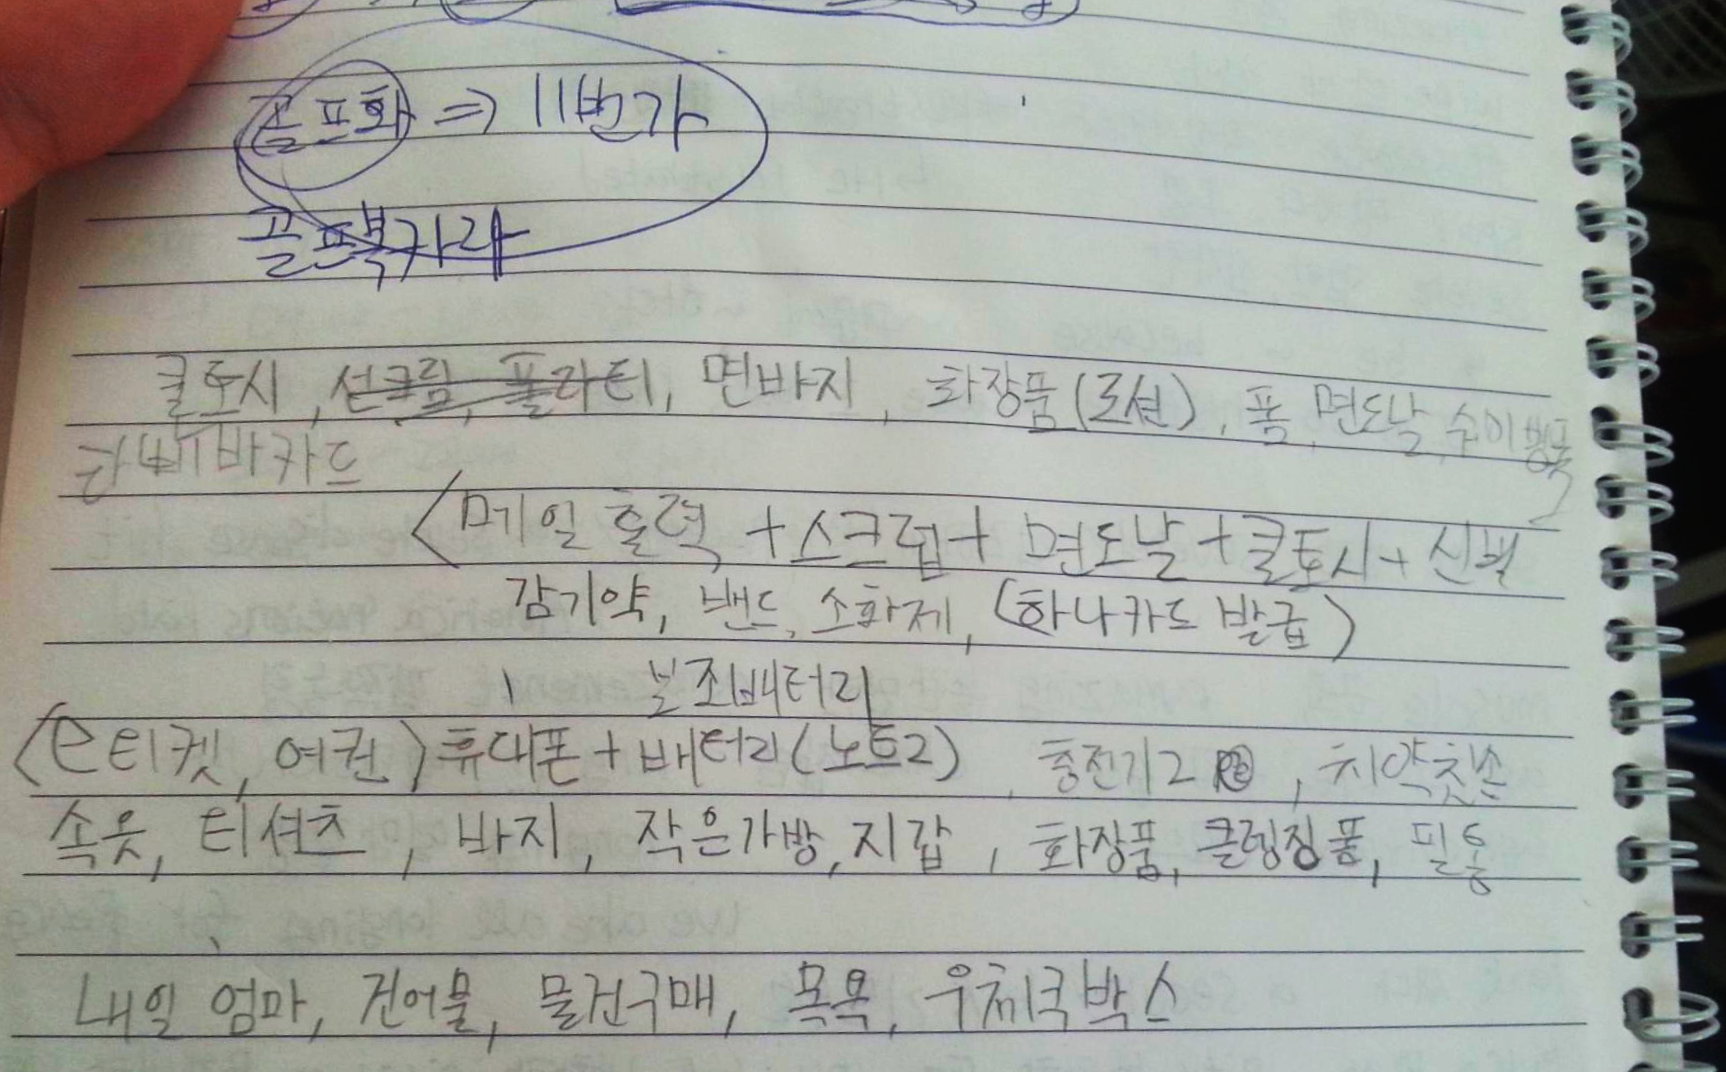 골프화 => 11번가
골프복카라
쿨토시, 선크림, 폴라티, 면바지, 화장품(로션), 폼, 면도날, 수이빙폼
라베바카드
<메일 출력 + 스크랩 + 면도날 + 쿨토시 + 신발
감기약, 밴드, 소화제, (하나카드 발급)
보조배터리
<e티켓, 여권> 휴대폰 + 배터리(노트2), 충전기2, 치약칫솔
속옷, 티셔츠, 바지, 작은가방, 지갑, 화장품, 클렝징폼, 필통
내일 엄마, 건어물, 물건구매, 목욕, 우체국박스